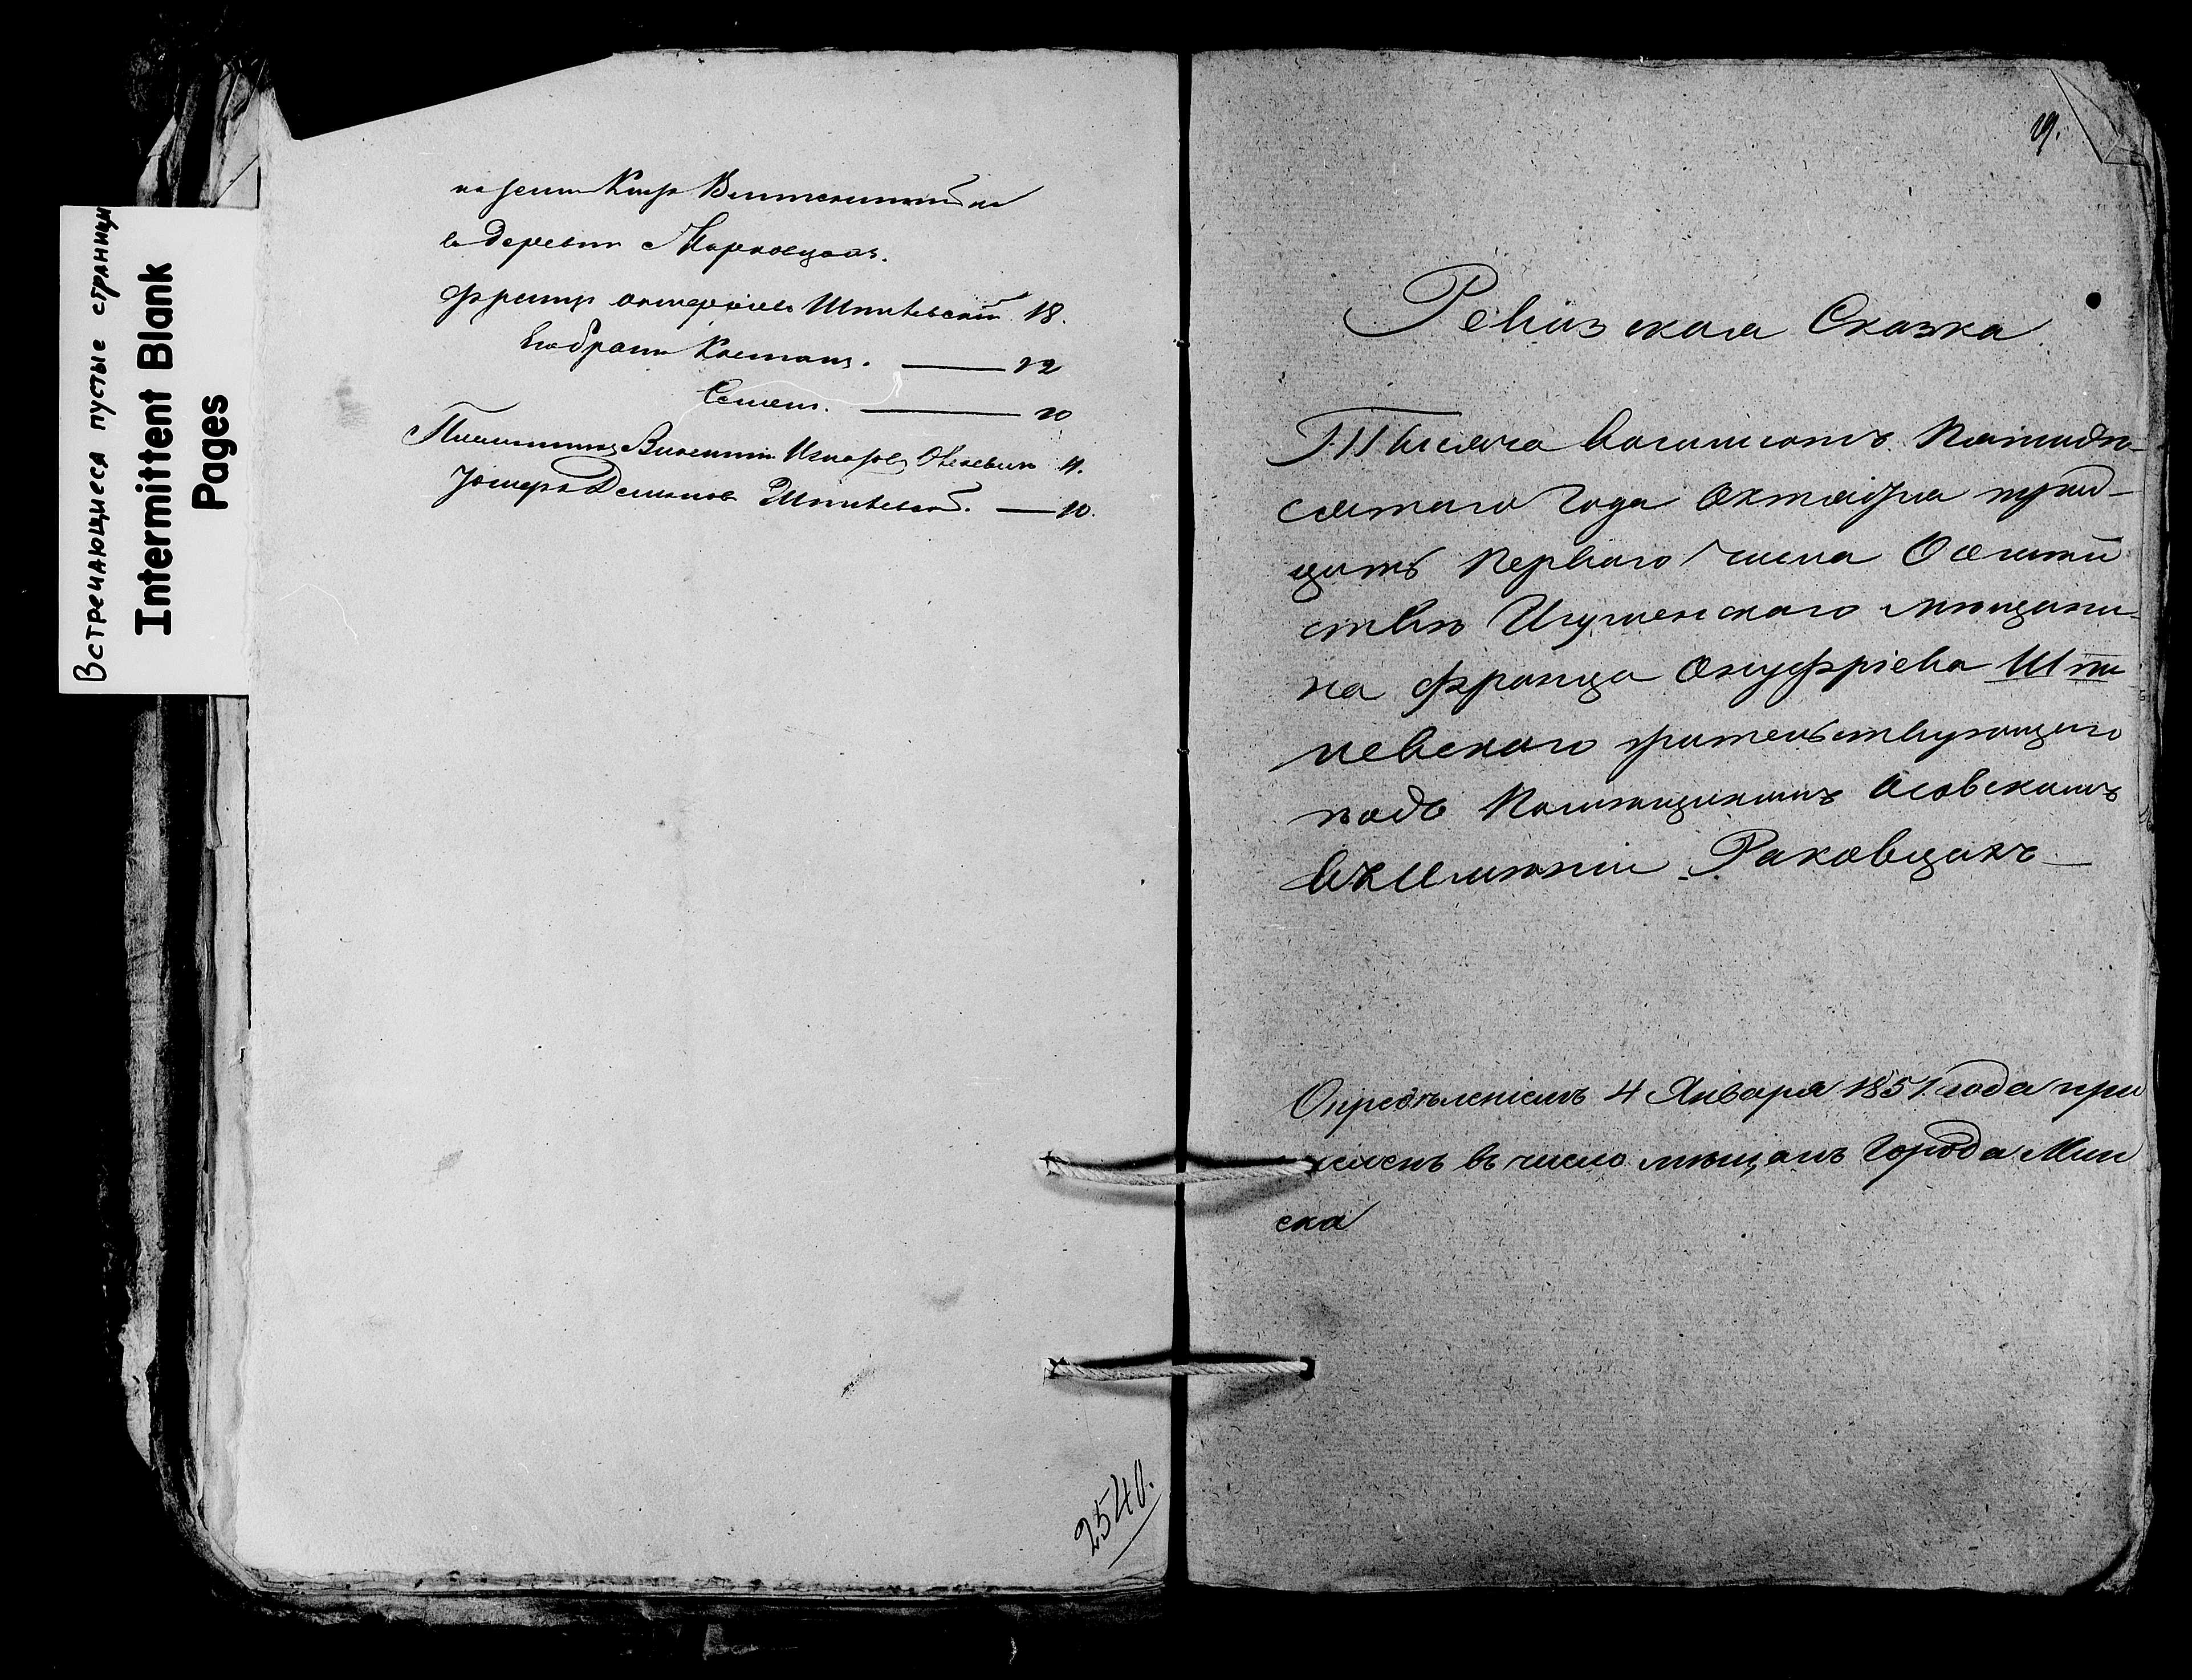 Встречающиеся пустые страницы
Intermittent Blank
Pages
на земли Князя Витгенштейна
в деревни
Францъ Шпилевскій 18.
Его братъ — 22
Семенъ. — 20
Викентій 11.
Шпилевскій. — 10.
2540.
19.
Ревизская Сказка
Тысяча восемьсотъ Пятиде-
сятаго Года Октября трид-
цать Перваго числа О семѣй
ствѣ Игуменскаго мѣщани-
на Франца Онуфріева Шпи
левскаго жительствующаго
подъ Помѣщикомъ Осовскимъ
въ Имѣніи Раковцахъ
Опредѣленіемъ 4 Января 1851 года при
численъ въ число мѣщанъ Города Мин
ска